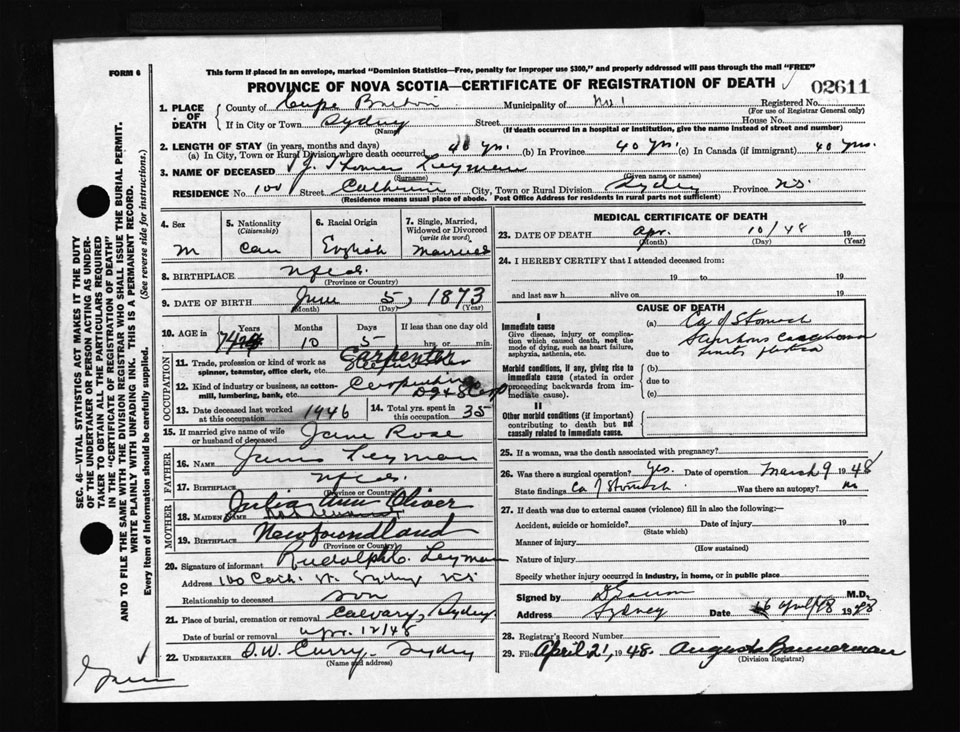 FORM 6
This form if placed in an envelope, marked "Dominion Statistics—Free, penalty for improper use $300," and properly addressed will pass through the mail "FREE"
PROVINCE OF NOVA SCOTIA—CERTIFICATE OF REGISTRATION OF DEATH
02611
1. PLACE OF DEATH
County of Cape Breton Municipality of No 1 Registered No.
(For use of Registrar General only)
If in City or Town Sydney Street House No.
(Name) (If death occurred in a hospital or institution, give the name instead of street and number)
2. LENGTH OF STAY (in years, months and days)
(a) In City, Town or Rural Division where death occurred 40 yrs. (b) In Province 40 yrs. (c) In Canada (if immigrant) 40 yrs.
3. NAME OF DECEASED J. Thomas Leyman
(Surname) (Given name or names)
RESIDENCE No. 100 Street Catherine City, Town or Rural Division Sydney Province N.S.
(Residence means usual place of abode. Post Office Address for residents in rural parts not sufficient)
4. Sex
M
5. Nationality
(Citizenship)
Can
6. Racial Origin
English
7. Single, Married, Widowed or Divorced
(write the word)
Married
8. BIRTHPLACE Nfld.
(Province or Country)
9. DATE OF BIRTH June 5, 1873
(Month) (Day) (Year)
10. AGE in
Years Months Days If less than one day old
74 10 5 hrs. or min.
OCCUPATION
11. Trade, profession or kind of work as spinner, teamster, office clerk, etc. Carpenter
12. Kind of industry or business, as cotton-mill, lumbering, bank, etc. Carpentering
13. Date deceased last worked at this occupation 1946
14. Total yrs. spent in this occupation 35
15. If married give name of wife or husband of deceased Jane Rose
FATHER
16. NAME James Leyman
17. BIRTHPLACE Nfld.
(Province or Country)
MOTHER
18. MAIDEN NAME Julia Ann Oliver
19. BIRTHPLACE Newfoundland
(Province or Country)
20. Signature of informant Rudolph C. Leyman
Address 100 Cath. St. Sydney N.S.
Relationship to deceased son
21. Place of burial, cremation or removal Calvary, Sydney
Date of burial or removal Apr. 12/48
22. UNDERTAKER D.W. Curry. Sydney
(Name and address)
MEDICAL CERTIFICATE OF DEATH
23. DATE OF DEATH Apr. 10/48 19
(Month) (Day) (Year)
24. I HEREBY CERTIFY that I attended deceased from:
19 to 19
and last saw h alive on 19
CAUSE OF DEATH
I
Immediate cause
Give disease, injury or complication which caused death, not the mode of dying, such as heart failure, asphyxia, asthenia, etc.
(a) Ca of Stomach
due to
Morbid conditions, if any, giving rise to immediate cause (stated in order proceeding backwards from immediate cause).
(b)
due to
(c)
II
Other morbid conditions (if important) contributing to death but not causally related to immediate cause.
25. If a woman, was the death associated with pregnancy?
26. Was there a surgical operation? Yes. Date of operation March 9 1948
State findings Ca of Stomach Was there an autopsy? No
27. If death was due to external causes (violence) fill in also the following:
Accident, suicide or homicide? Date of injury 19
(State which)
Manner of injury
(How sustained)
Nature of injury
Specify whether injury occurred in industry, in home, or in public place
Signed by M.D.
Address Sydney Date 16 April/48 1948
28. Registrar's Record Number
29. Filed April 21, 1948. Augusta Bannerman
(Division Registrar)
SEC. 46—VITAL STATISTICS ACT MAKES IT THE DUTY
OF THE UNDERTAKER OR PERSON ACTING AS UNDER-
TAKER TO OBTAIN ALL THE PARTICULARS REQUIRED
IN THE "CERTIFICATE OF REGISTRATION OF DEATH"
AND TO FILE THE SAME WITH THE DIVISION REGISTRAR WHO SHALL ISSUE THE BURIAL PERMIT.
WRITE PLAINLY WITH UNFADING INK. THIS IS A PERMANENT RECORD.
Every item of Information should be carefully supplied. (See reverse side for instructions.)